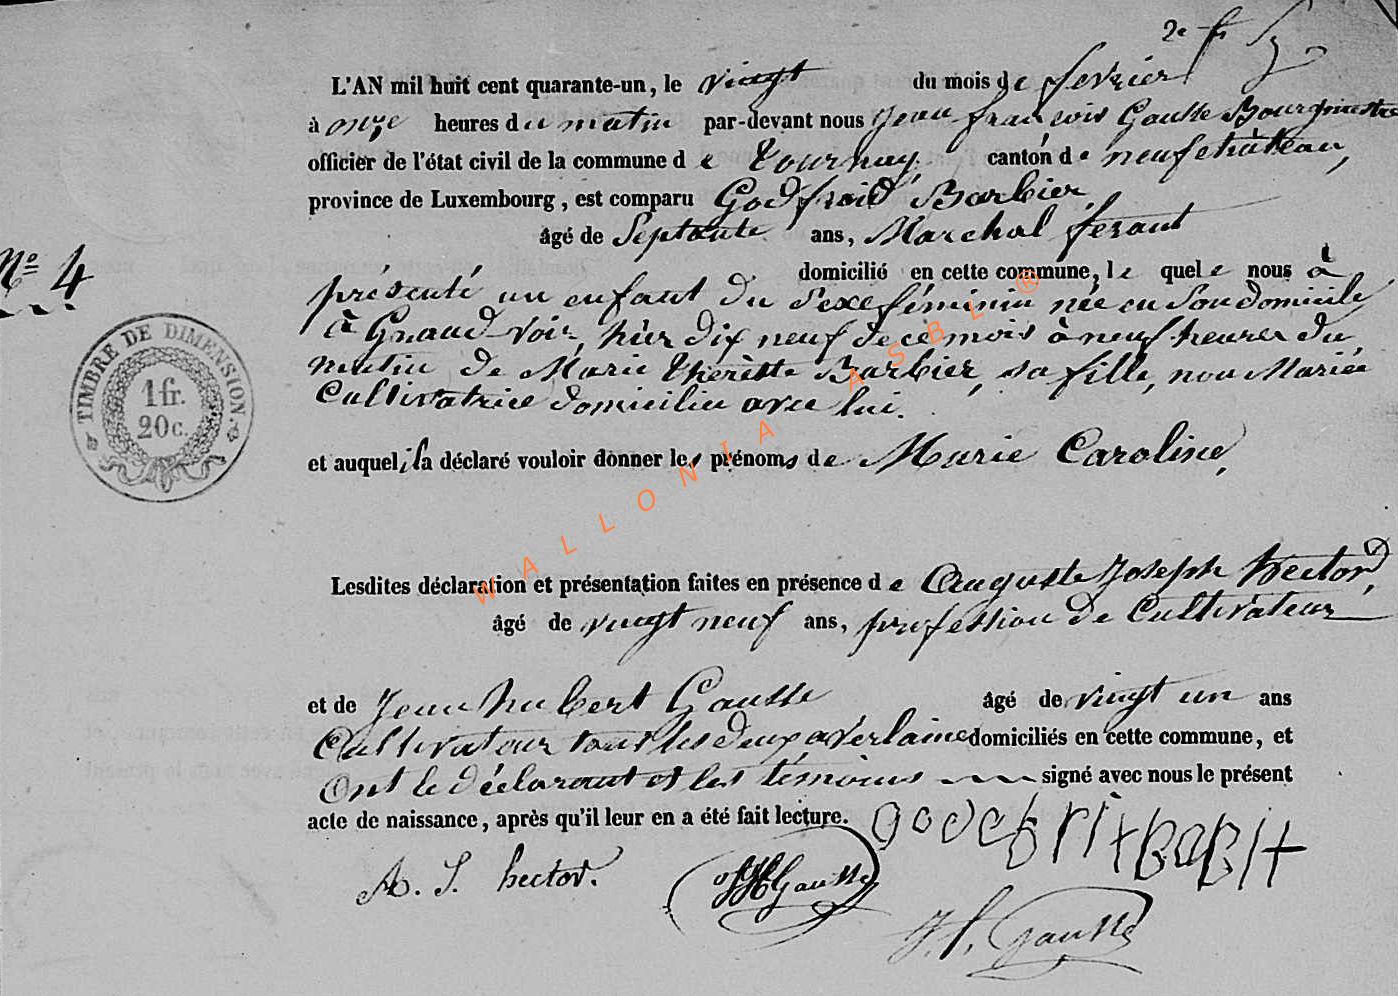 2e fr
L'AN mil huit cent quarante-un, le vingt du mois de fevrier
à onze heures du matin par-devant nous Jean françois Gausse Bourgmestre
officier de l'état civil de la commune de Tournay, canton de neufchâteau,
province de Luxembourg, est comparu Godfroid Barbier,
âgé de Septante ans, Marchal ferant
domicilié en cette commune, lequel nous à
N° 4
présenté un enfant du Sexe féminin née en Son domicile
à Grand voir, hier dix neuf de ce mois à neuf heures du
matin de Marie Therèsse Barbier, sa fille, non Mariée
Cultivatrice domiciliée avec lui.
et auquel il a déclaré vouloir donner les prénoms de Marie Caroline,
TIMBRE DE DIMENSION.
1 fr.
20 c.
Lesdites déclaration et présentation faites en présence de Auguste Joseph Hector,
âgé de vingt neuf ans, profession de Cultivateur
et de Jean hubert Gausse âgé de vingt un ans
Cultivateur tous les deux a verlaine domiciliés en cette commune, et
Ont le déclarant et les témoins signé avec nous le présent
acte de naissance, après qu'il leur en a été fait lecture.
A. J. hector. JH Gausse
J. f. Gausse
WALLONIA ASBL ®